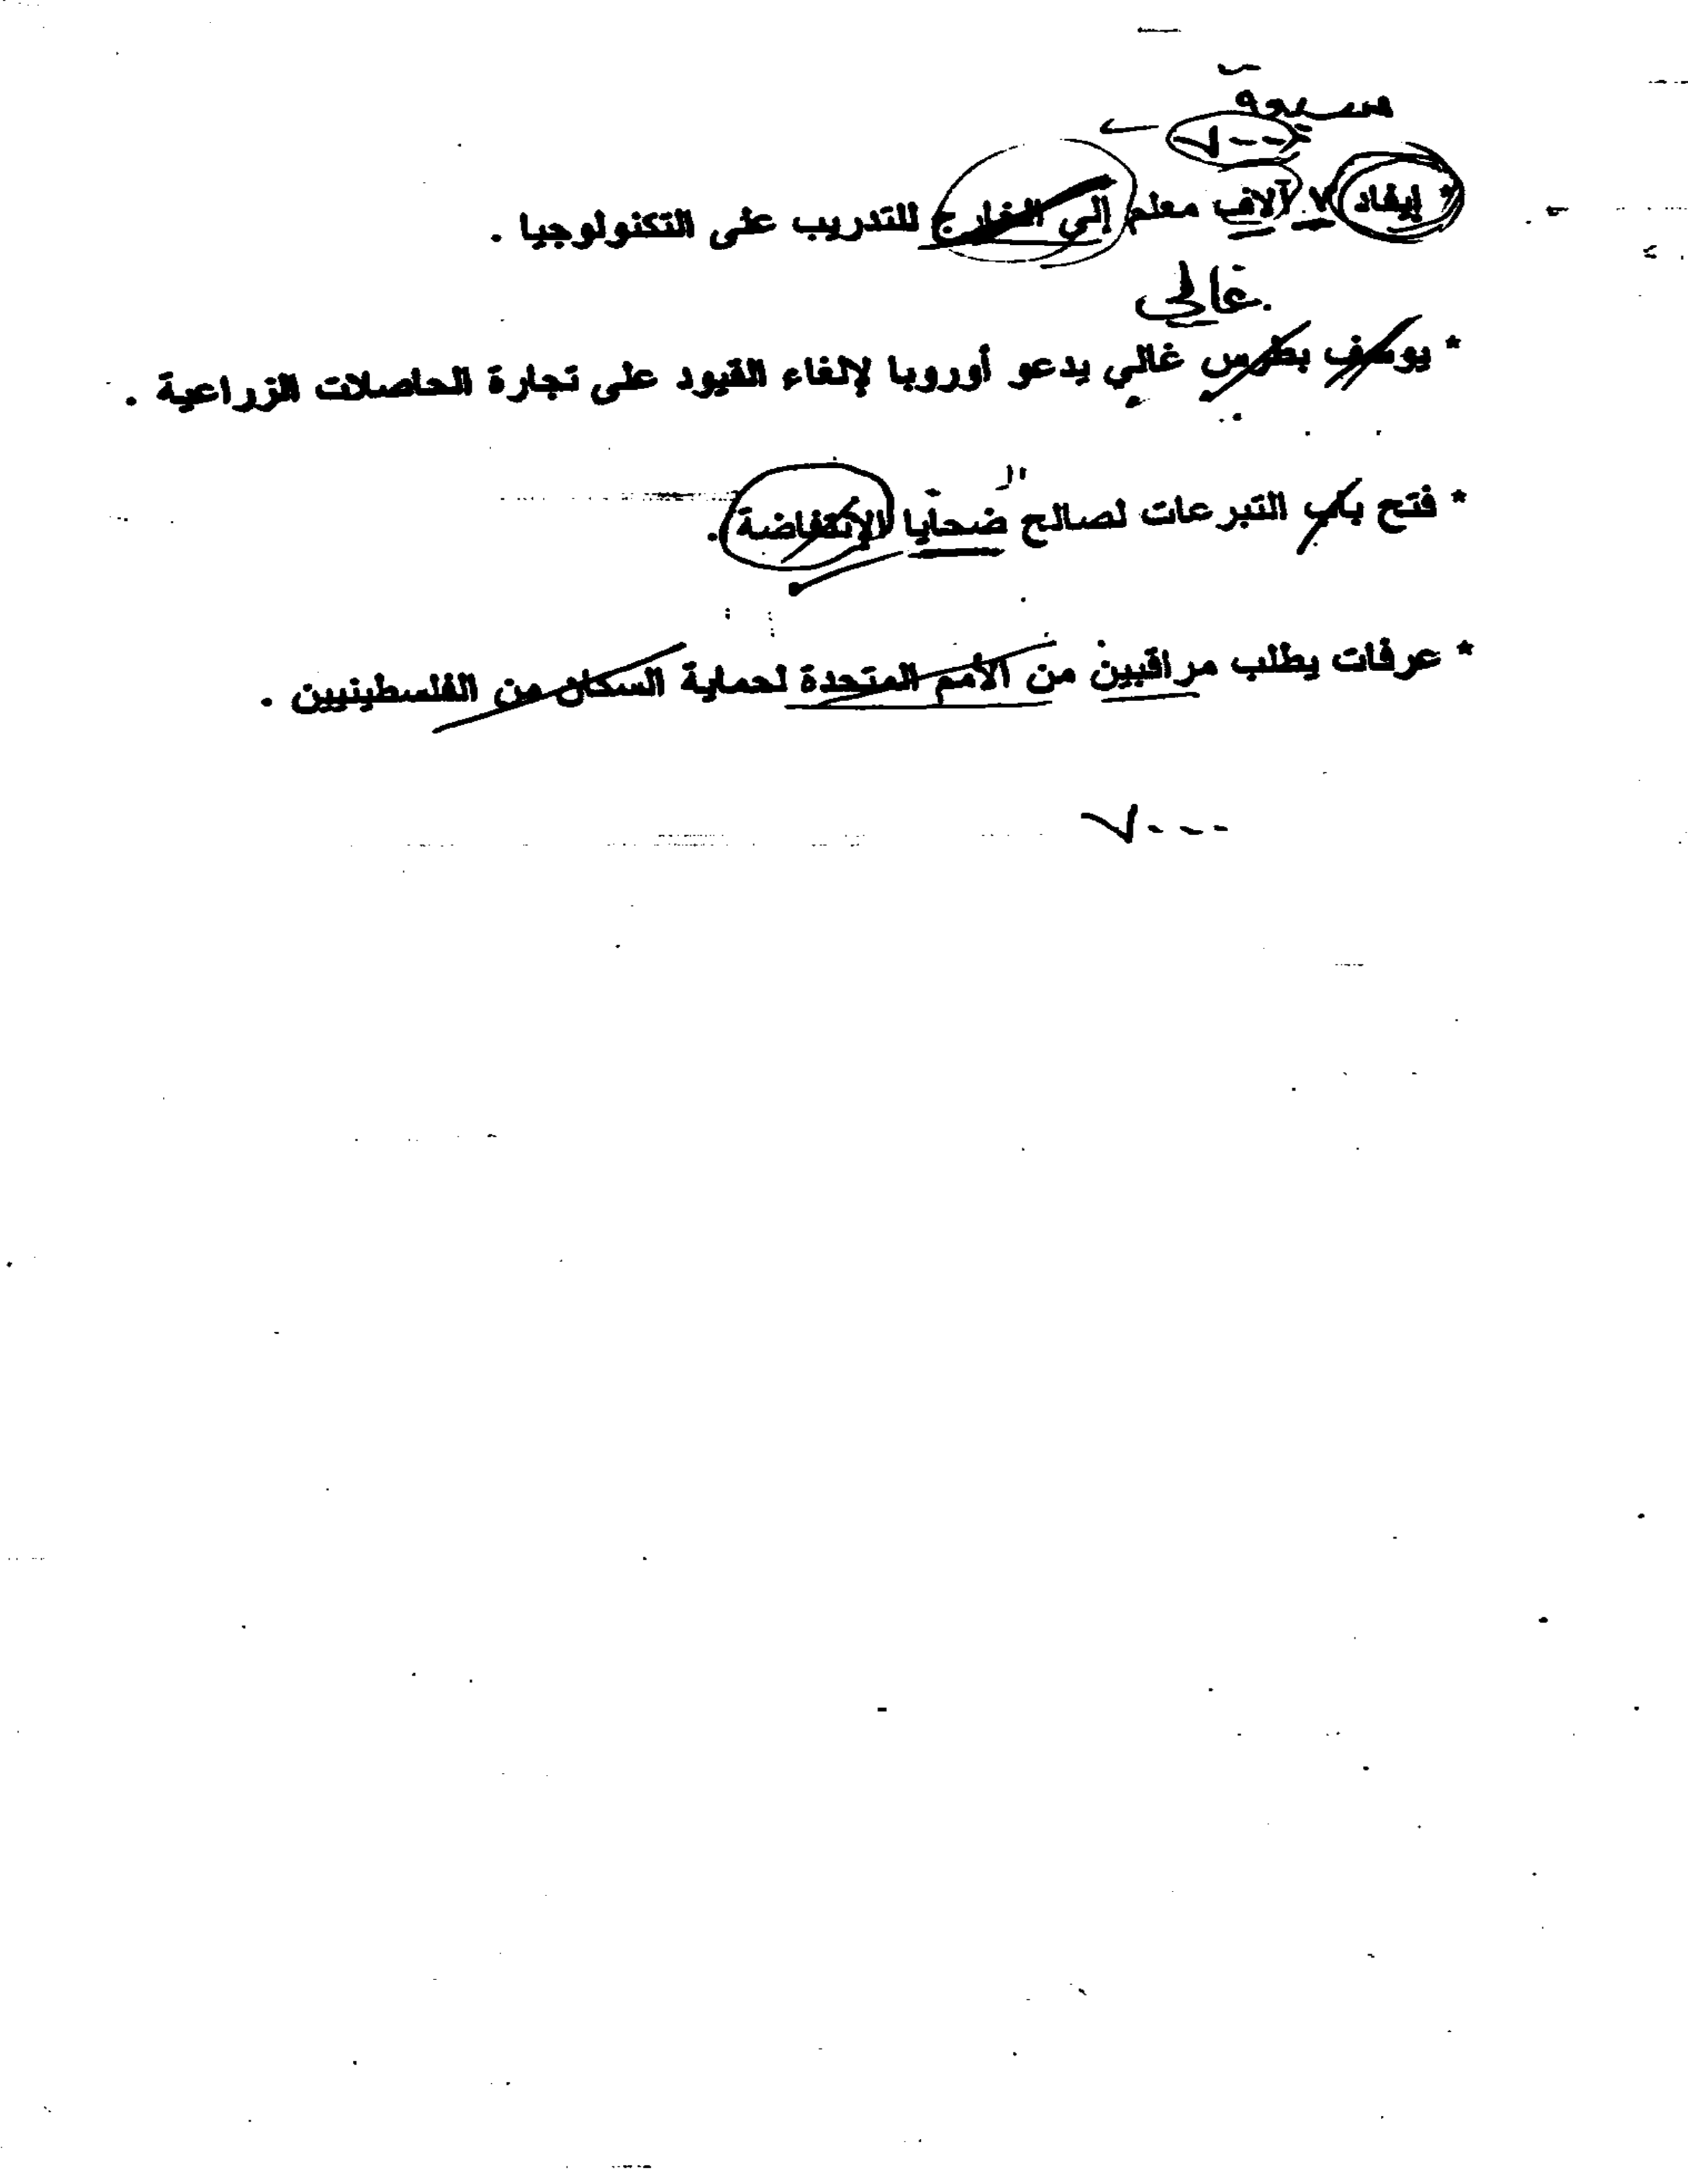 سبعة
٧٠٠٠
* إيفاد ٧ آلاف معلم إلى الخارج للتدريب على التكنولوجيا .
غالي
* يوسف بطرس غالي يدعو أوروبا لإلغاء القيود على تجارة الحاصلات الزراعية .
* فتح باب التبرعات لصالح ضحايا الإنتفاضة .
* عرفات يطلب مراقبين من الأمم المتحدة لحماية السكان من الفلسطينيين .
٧٠٠٠